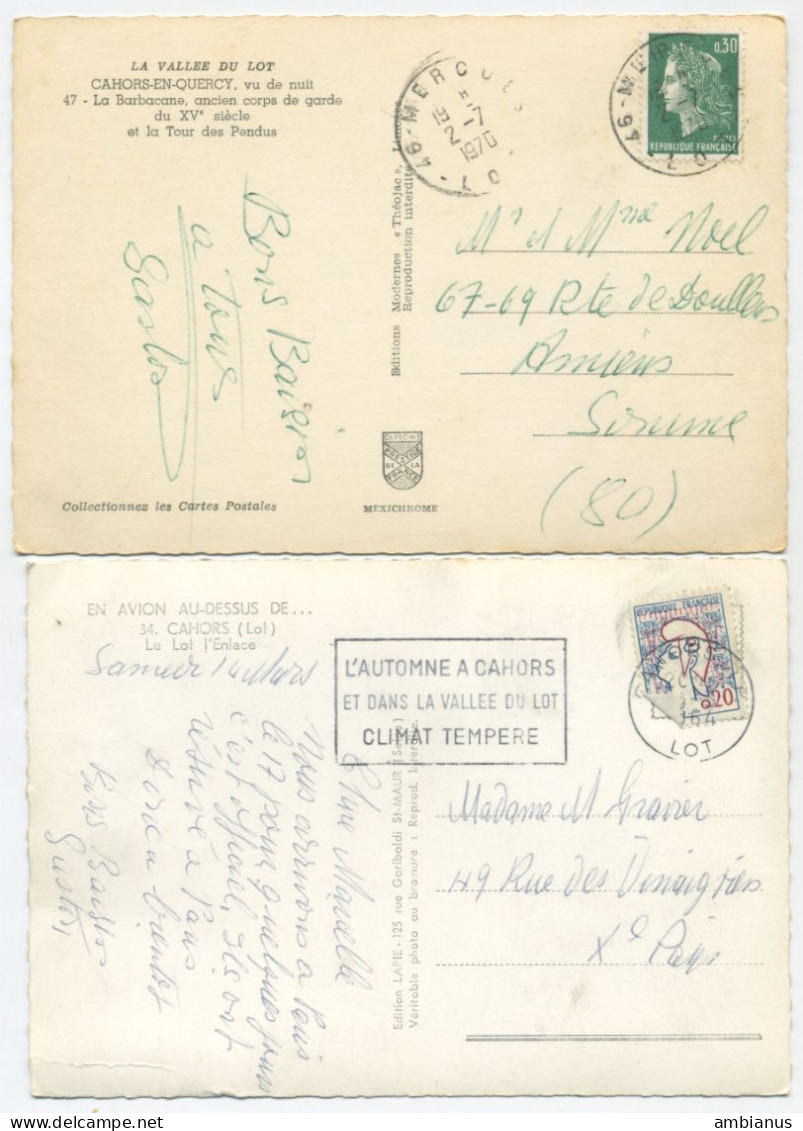 LA VALLEE DU LOT
CAHORS-EN-QUERCY, vu de nuit
47 - La Barbacane, ancien corps de garde
du XVe siècle
et la Tour des Pendus
Bons Baisers
a tous
46 - MERCUES
19
2 - 7
1970
LOT
0,30
POSTES
REPUBLIQUE FRANÇAISE
46 - MER
LOT
Editions Modernes « Théojac », Limoges
Reproduction interdite
Mr et Mme Noel
67-69 Rte de Doullens
Amiens
Somme
(80)
DIPLOME
PRESTIGE
DE LA
FRANCE
Collectionnez les Cartes Postales
MEXICHROME
EN AVION AU-DESSUS DE...
34. CAHORS (Lot)
Le Lot l'Enlace
Samedi 14
L'AUTOMNE A CAHORS
ET DANS LA VALLEE DU LOT
CLIMAT TEMPERE
REPUBLIQUE FRANÇAISE
0,20
CAHORS
1964
LOT
Chère
Nous arrivons a Paris
le 17 pour quelques jours
c'est officiel, ils ont
réservé à Paris
Donc a bientot
Bons Baisers
Edition LAPIE - 125 rue Garibaldi St-MAUR (Seine)
Véritable photo au bromure : Reprod. Interdite
Madame M Gravier
49 Rue des Vinaigriers
Xe Paris
ambianus